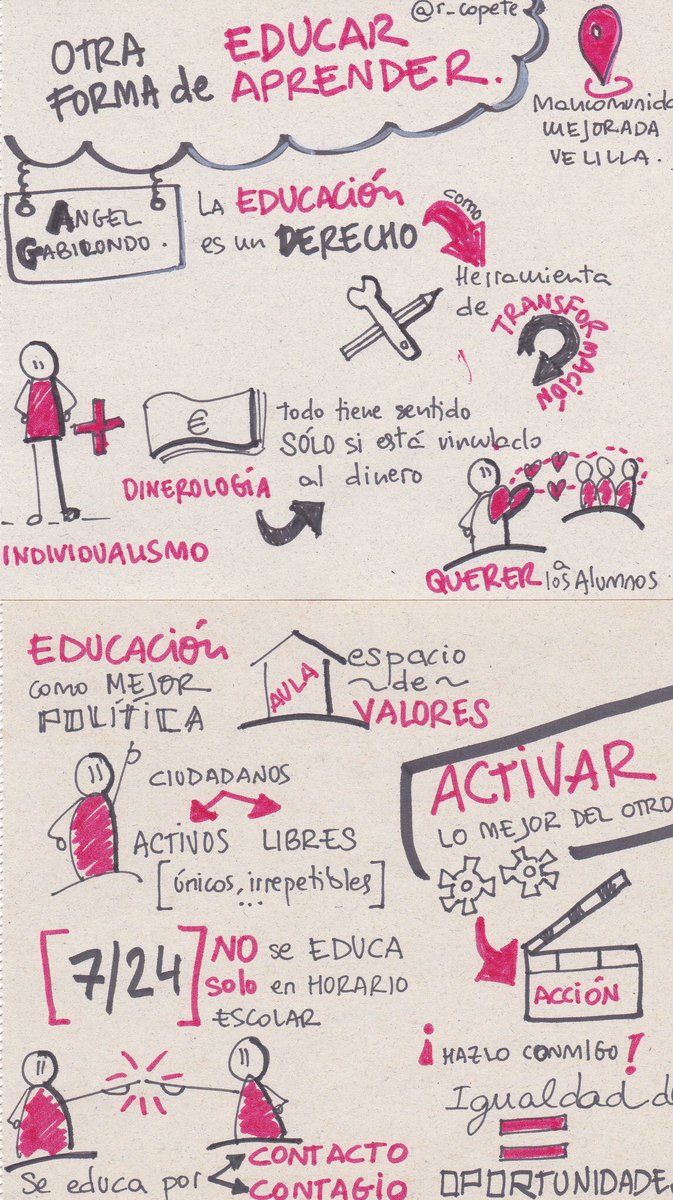 @r_copete
OTRA
FORMA de
EDUCAR
APRENDER.
Mancomunida
MEJORADA
VELILLA.
ANGEL
GABILONDO.
LA EDUCACIÓN
es un DERECHO
como
Herramienta
de
TRANSFORMACIÓN
€
todo tiene sentido
SÓLO si está vinculado
al dinero
DINEROLOGÍA
INDIVIDUALISMO
QUERER a
los Alumnos
EDUCACIÓN
como MEJOR
POLÍTICA
AULA
espacio
~de~
VALORES
CIUDADANOS
ACTIVOS LIBRES
[únicos, irrepetibles]
...
ACTIVAR
LO MEJOR DEL OTRO
[7/24]
NO se EDUCA
solo en HORARIO
ESCOLAR
ACCIÓN
¡HAZLO CONMIGO!
Igualdad d
=
OPORTUNIDADE
Se educa por
CONTACTO
CONTAGIO